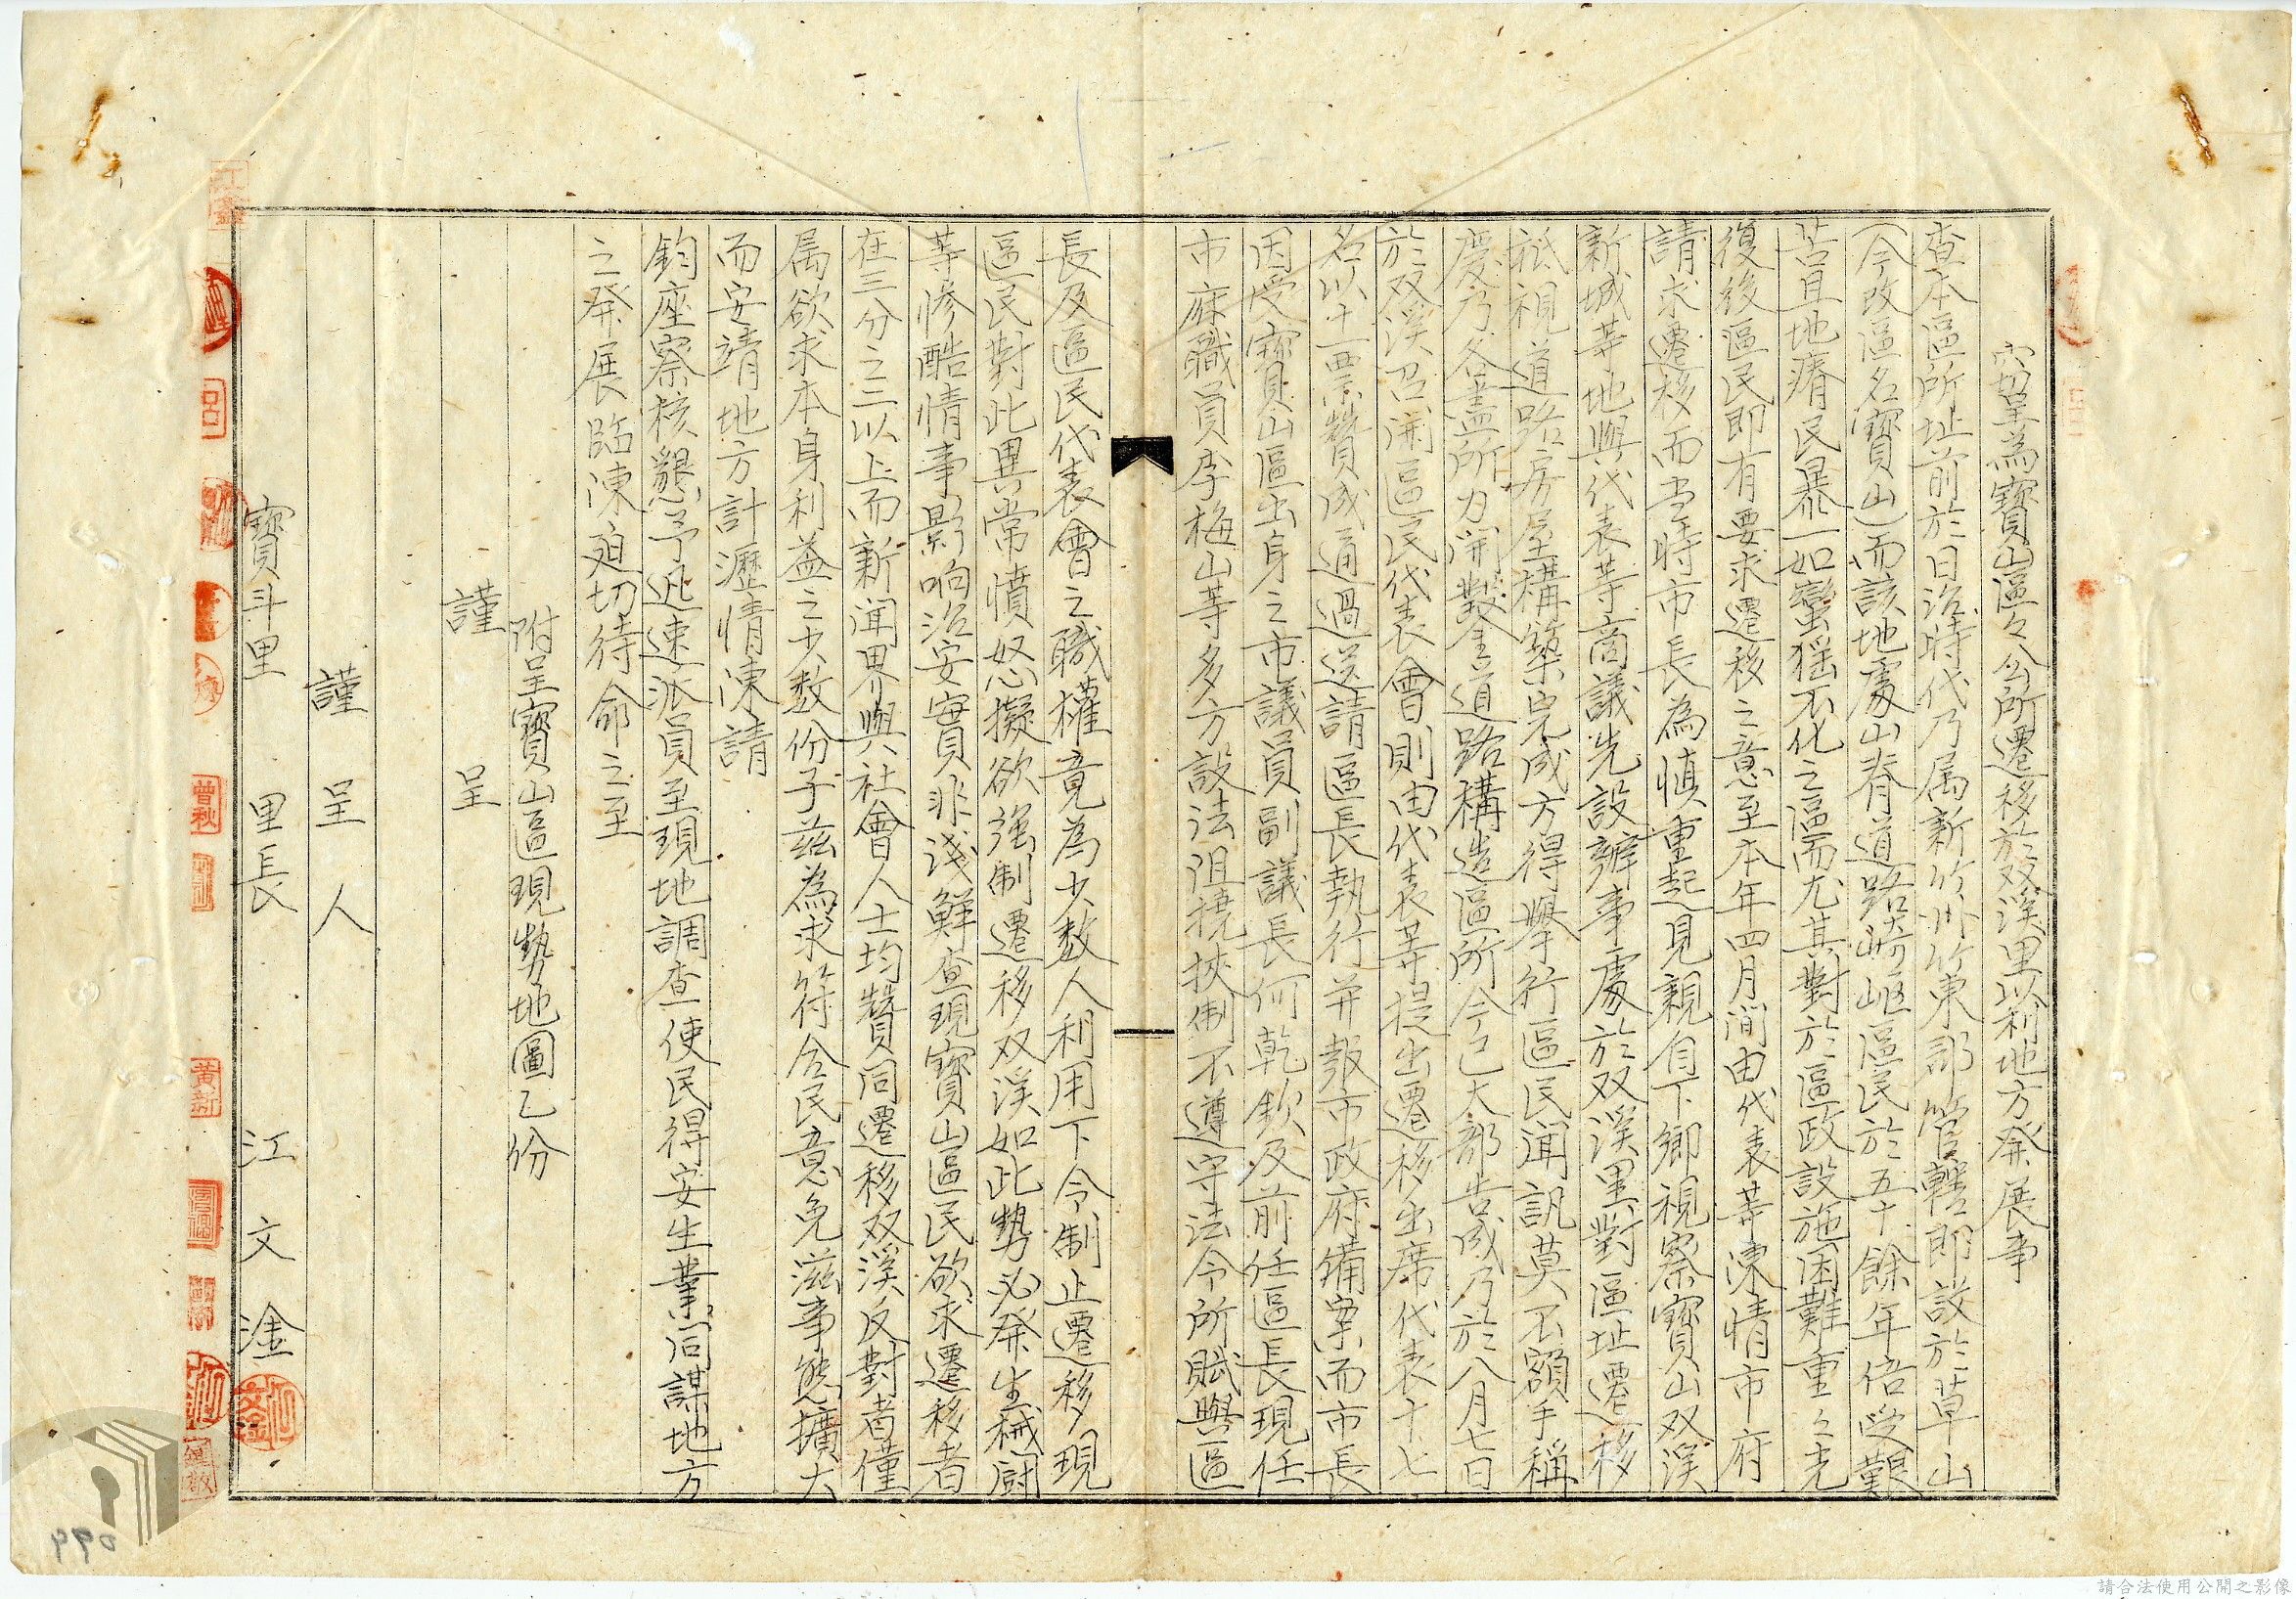 窃呈為寶山區々公所遷移於双溪里以利地方発展事
查本區所址前於日治時代乃属新竹州竹東郡管轄即設於草山
(今改區名寶山)而該地處山脊道路崎岖區民於五十餘年倍受艱
苦且地瘠民暴一如蠻猺不化之區而尤其對於區政設施困難重々光
復後區民即有要求遷移之意至本年四月間由代表莘陳情市府
請求遷移而当時市長為慎重起見親自下鄉視察寶山双溪
新城莘地與代表莘商議先設辦事處於双溪里對區址遷移
祗視道路房屋構築完成方得舉行區民闻訊莫不額手稱
慶乃各盡所力開鑿全道路構造區所今已大部告成乃於八月七日
於双溪召開區民代表會則由代表莘提出遷移出席代表十七
名以十一票贊成通過送請區長執行并報市政府備案而市長
因受寶山區出身之市議員副議長何乾欽及前任區長現任
市府職員李梅山等多方設法阻撓挾制不遵守法令所賦與區
長及區民代表會之職權竟為少数人利用下令制止遷移現
區民對此異常憤怒擬欲强制遷移双溪如此勢必発生械鬪
等惨酷情事影响治安實非浅鮮查現寶山區民欲求遷移者
在三分之二以上而新闻界與社會人士均贊同遷移双溪反對者僅
属欲求本身利益之少数份子茲為求符合民意免滋事態擴大
而安靖地方計瀝情陳請
鈞座察核懇予迅速派員至現地調查使民得安生業同謀地方
之発展臨陳廹切待命之至
附呈寶山區現勢地圖乙份
謹呈
謹呈人
寶斗里 里長 江文淦
曾秋
黃新
090
請合法使用公開之影像